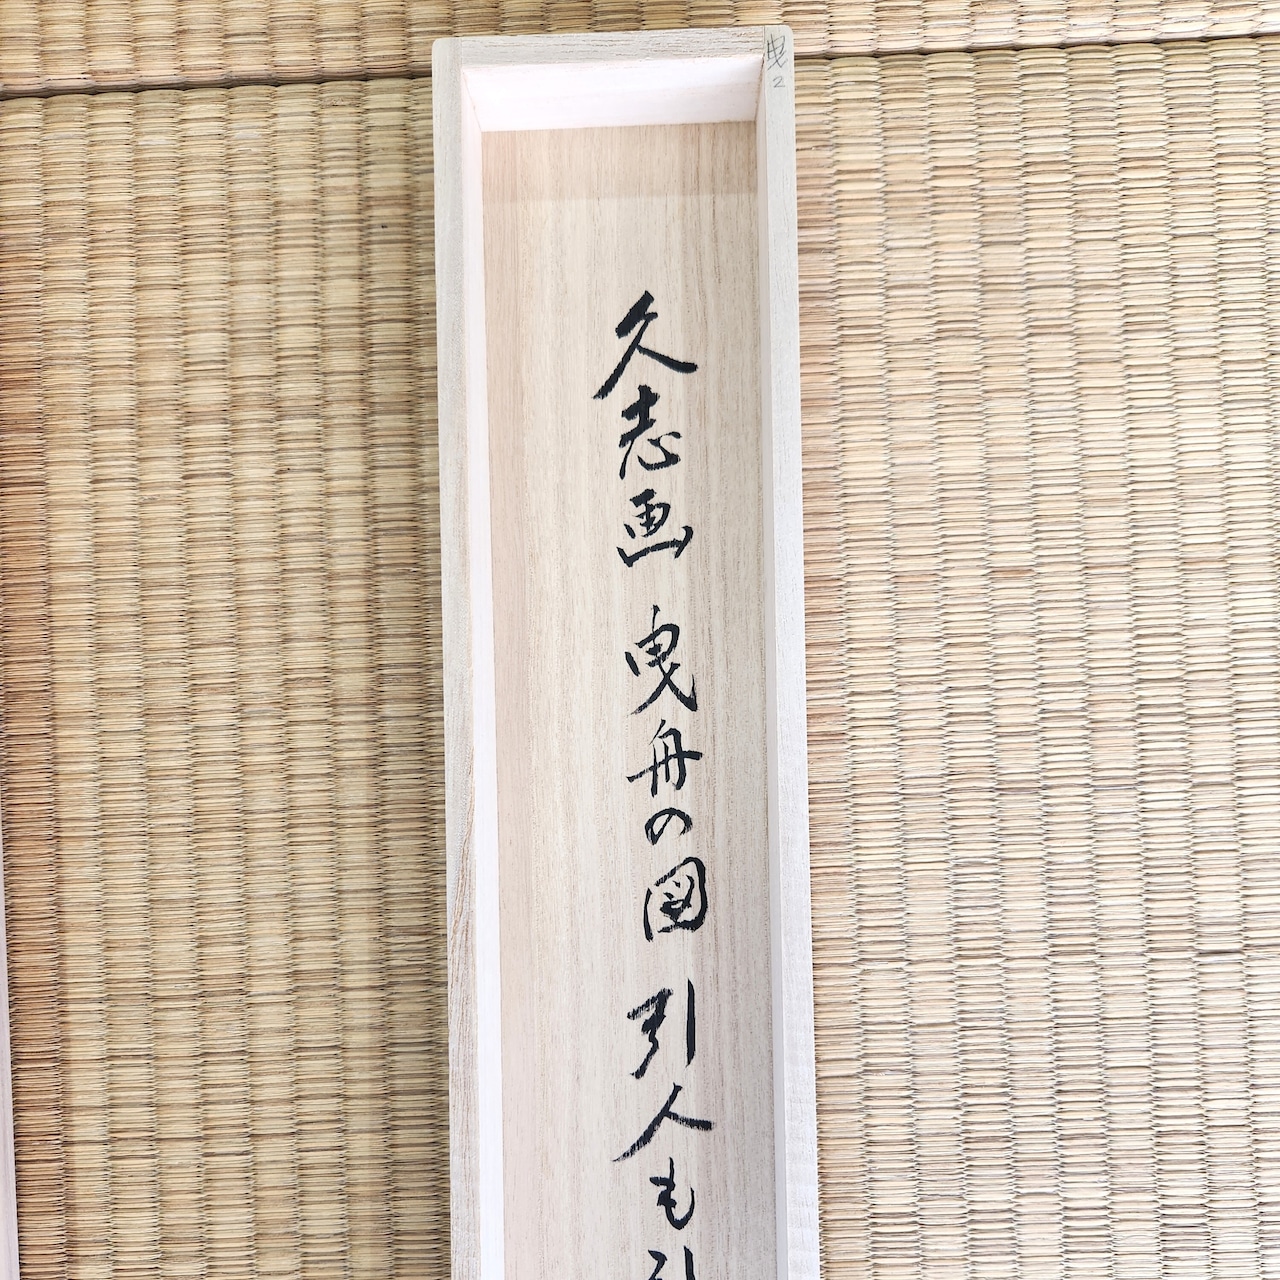 曳
2
久志画 曳舟の図 引人も引